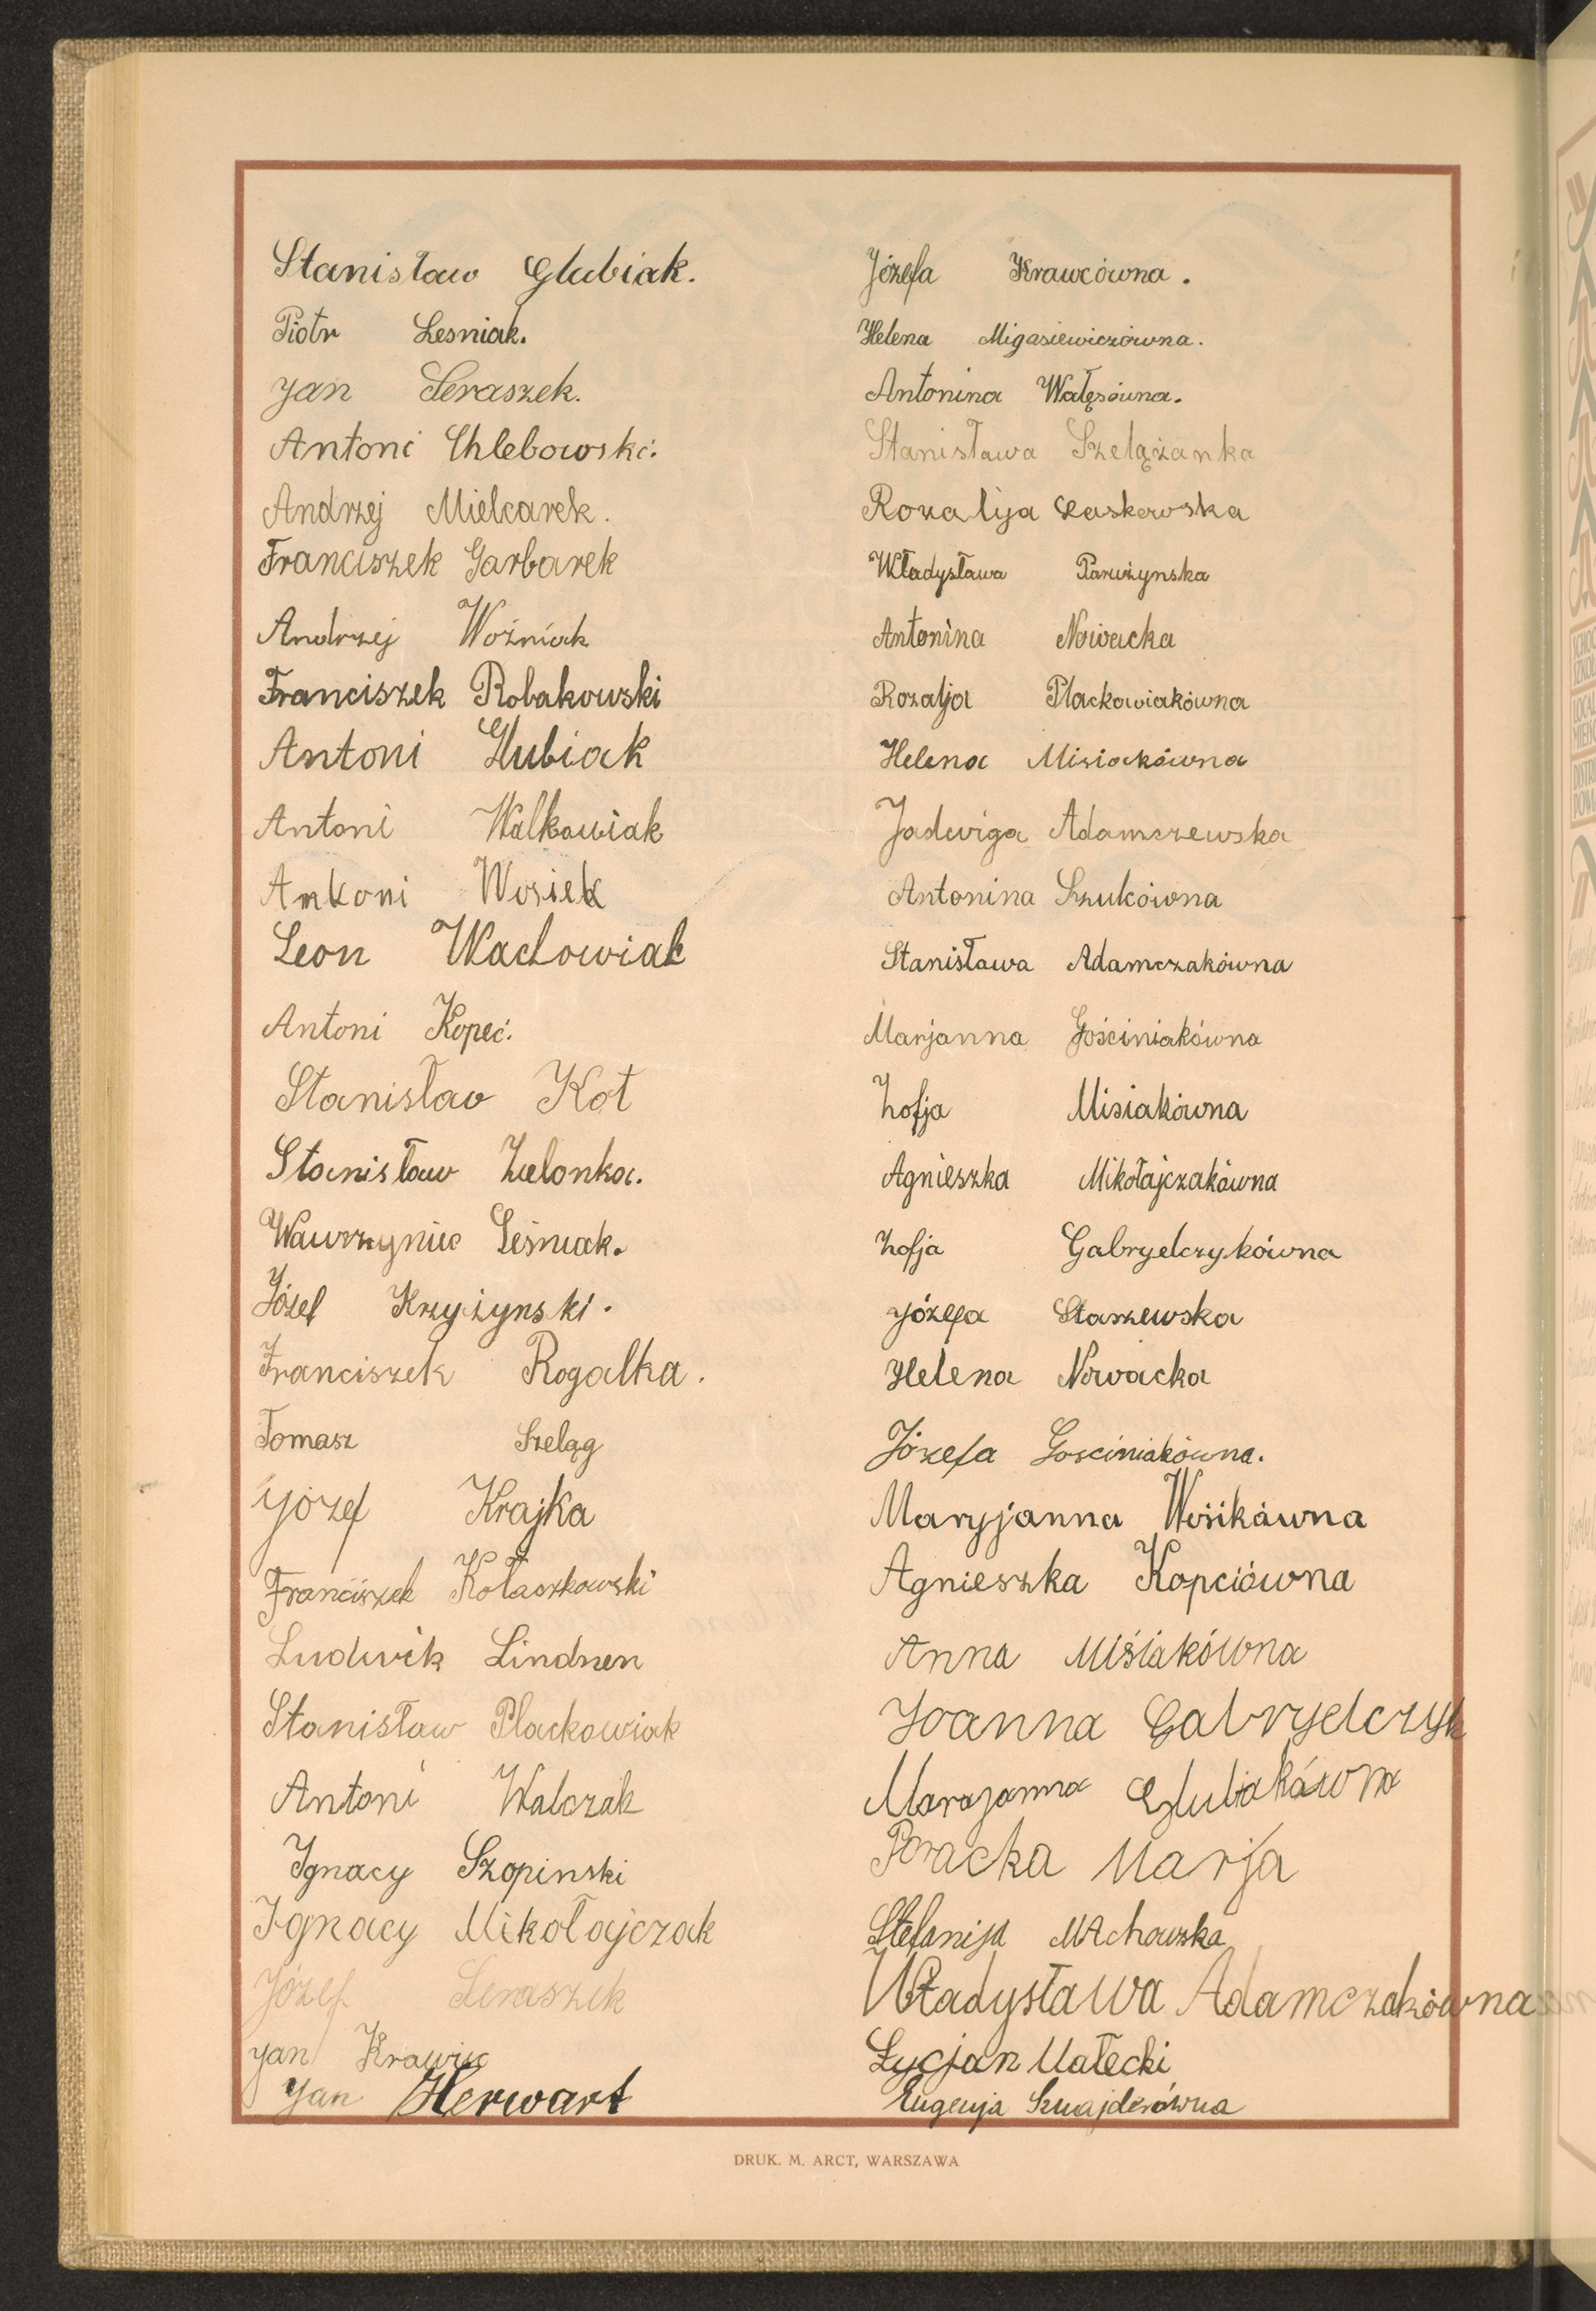 Stanisław Glubiak.
Piotr Lesniak.
Jan Seraszek.
Antoni Chlebowski.
Andrzej Mielcarek.
Franciszek Garbarek
Andrzej Woźniak
Franciszek Robakowski
Antoni Glubiak
Antoni Walkowiak
Antoni Wosiek
Leon Wachowiak
Antoni Kopeć.
Stanisław Kot
Stanisław Zielonka.
Wawrzyniec Leśniak.
Józef Krzyżynski.
Franciszek Rogalka.
Tomasz Szeląg
Józef Krajka
Franciszek Kołaszkowski
Ludwik Lindner
Stanisław Plackowiak
Antoni Walczak
Ignacy Szopinski
Ignacy Mikołajczak
Józef Seraszek
Jan Krawiec
Jan Herwart
Józefa Krawcówna.
Helena Migasiewiczówna.
Antonina Wałęsówna.
Stanisława Szelążanka
Rozalija Laskowska
Władysława
Antonina Nowacka
Rozalja Plackowiakówna
Helena Misiakówna
Jadwiga Adamczewska
Antonina Szukówna
Stanisława Adamczakówna
Marjanna Gościniakówna
Zofja Misiakówna
Agnieszka Mikołajczakówna
Zofja Gabryelczykówna
Józefa Staszewska
Helena Nowacka
Józefa Gosciniakówna.
Maryjanna Wośikówna
Agnieszka Kopciówna
Anna Miśiakówna
Joanna Gabryelczyk
Marajanna Glubiakówna
Pracka Marja
Stefanija Machowska
Władysława Adamczakówna
Łycjan Małecki
Eugenja Sznajderówna
DRUK. M. ARCT, WARSZAWA